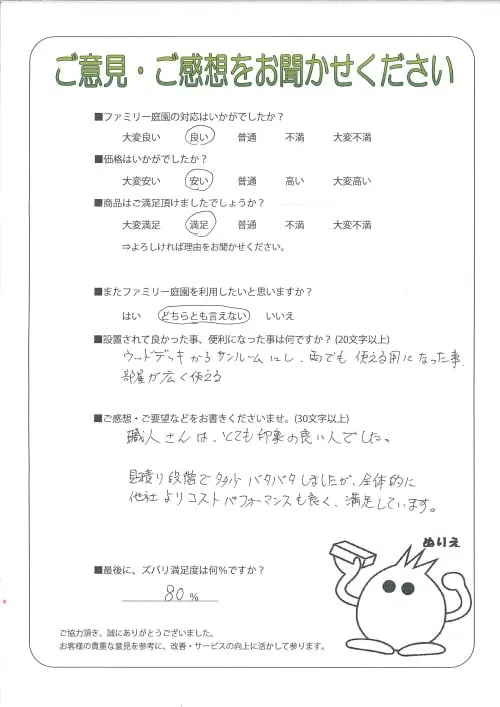 ご意見・ご感想をお聞かせください
■ファミリー庭園の対応はいかがでしたか？
大変良い 良い 普通 不満 大変不満
■価格はいかがでしたか？
大変安い 安い 普通 高い 大変高い
■商品はご満足頂けましたでしょうか？
大変満足 満足 普通 不満 大変不満
⇒よろしければ理由をお聞かせください。
■またファミリー庭園を利用したいと思いますか？
はい どちらとも言えない いいえ
■設置されて良かった事、便利になった事は何ですか？(20文字以上)
ウッドデッキからサンルームにし、雨でも使える用になった事.
部屋が広く使える
■ご感想・ご要望などをお書きくださいませ。(30文字以上)
職人さんは、とても印象の良い人でした。
見積り段階で多少バタバタしましたが、全体的に
他社よりコストパフォーマンスも良く、満足しています。
ぬりえ
■最後に、ズバリ満足度は何%ですか？
80 %
ご協力頂き、誠にありがとうございました。
お客様の貴重な意見を参考に、改善・サービスの向上に活かして参ります。